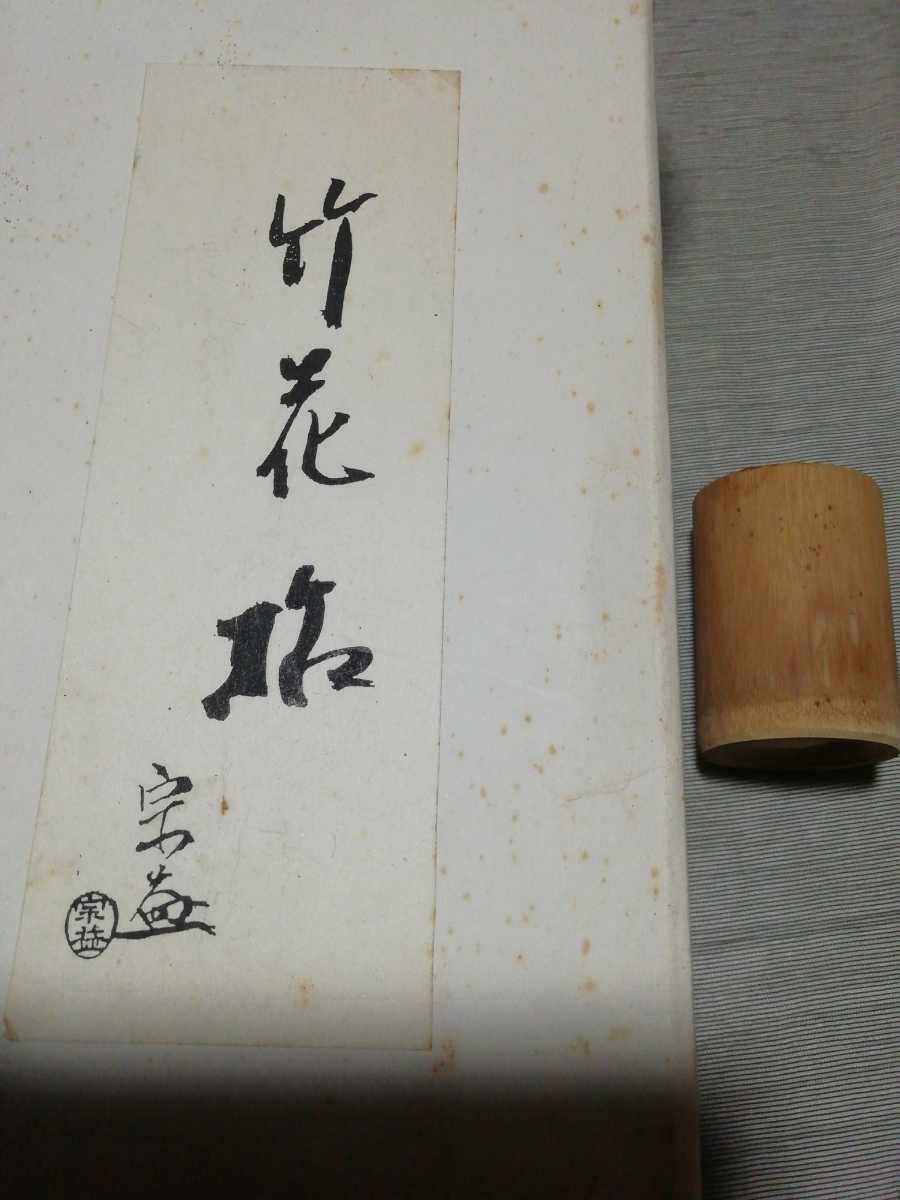 竹花拾
宗益
宗益